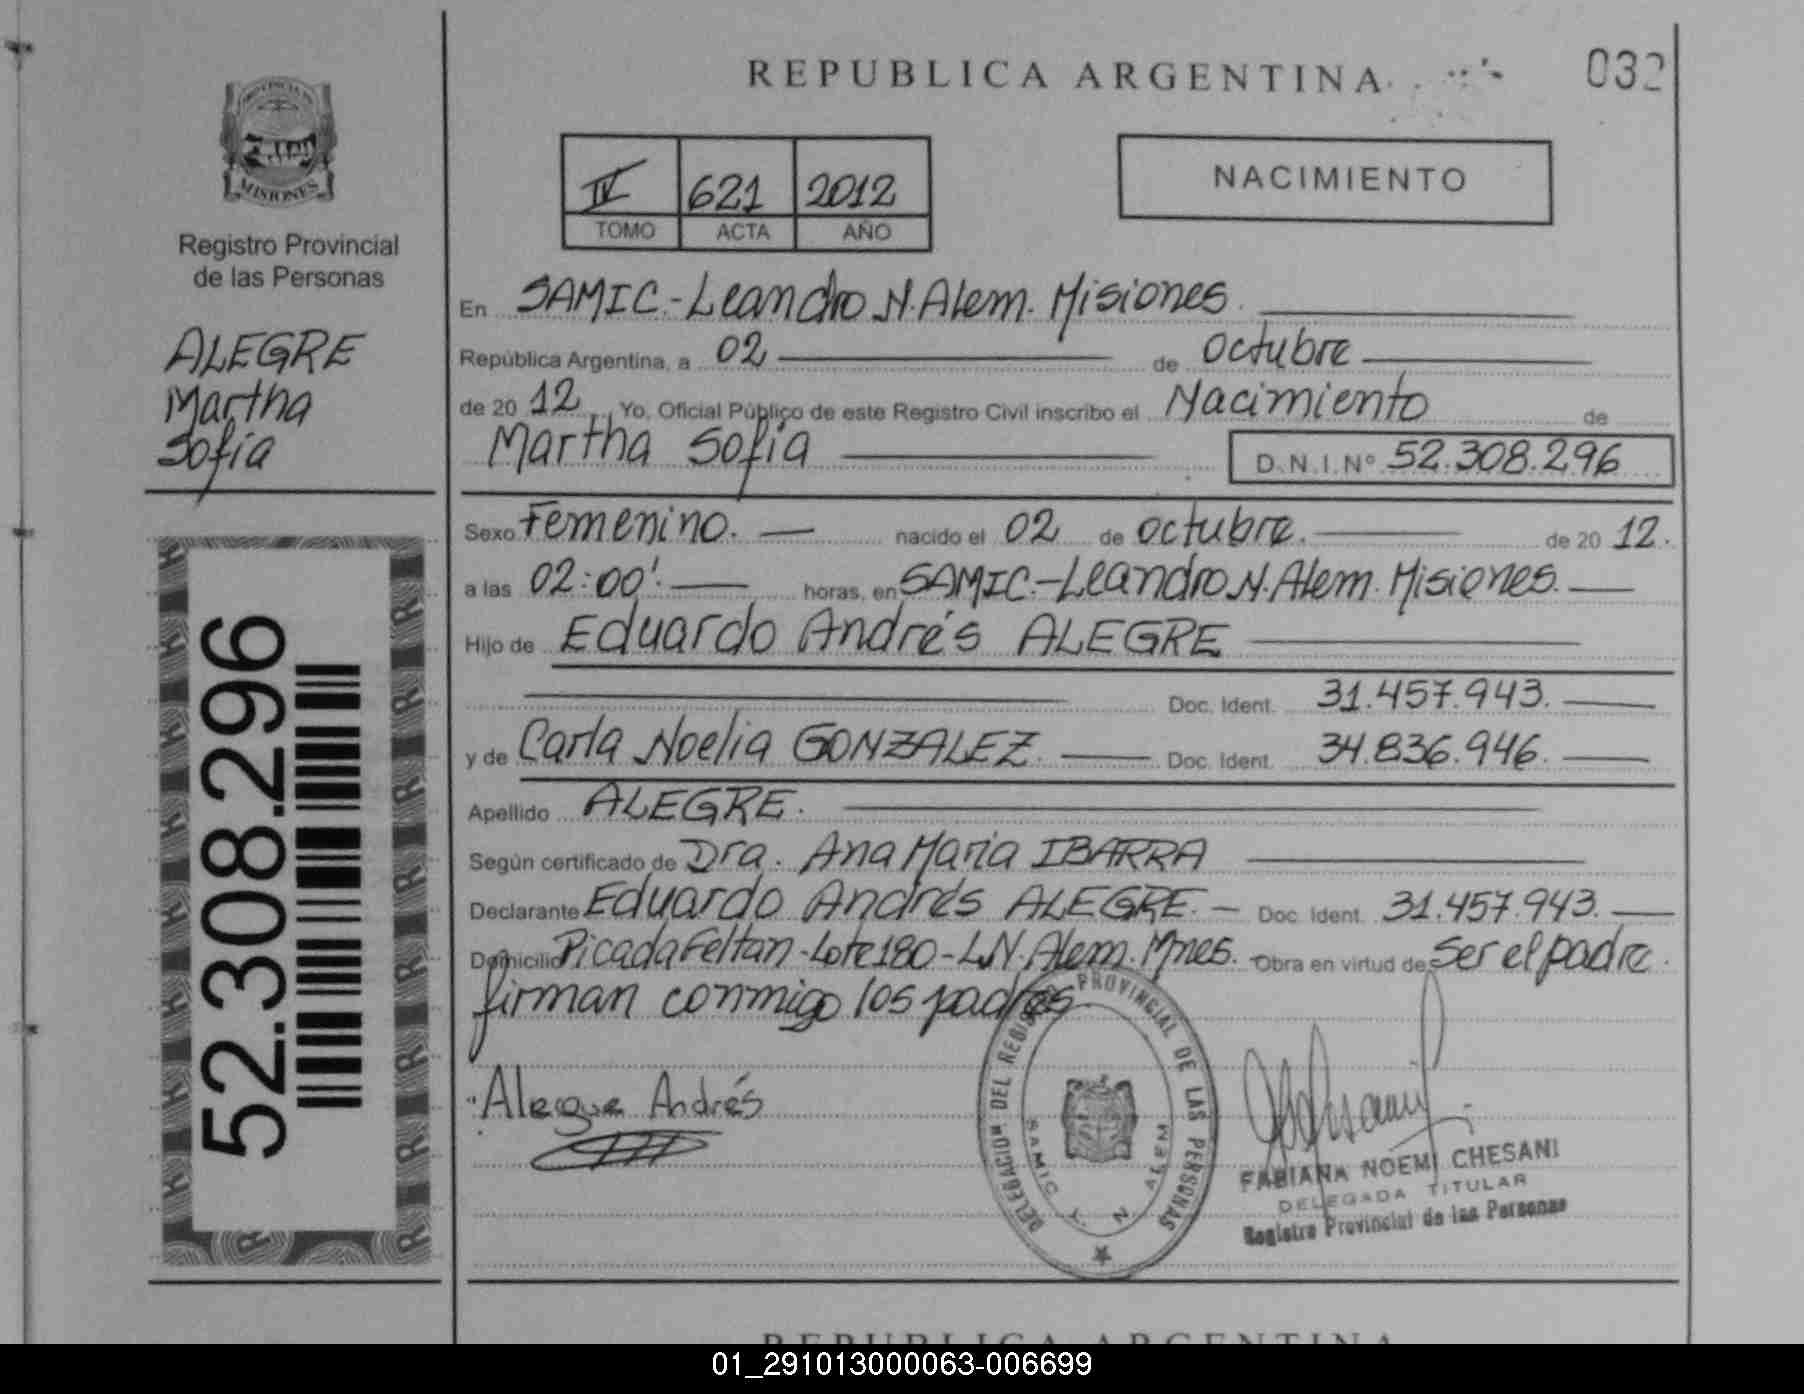 REPUBLICA ARGENTINA
032
PROVINCIA DE
MISIONES
Registro Provincial
de las Personas
ALEGRE
Martha
Sofía
52.308.296
IV 621 2012
TOMO ACTA AÑO
NACIMIENTO
En SAMIC.-Leandro N. Alem. Misiones.
República Argentina, a 02 de octubre
de 20 12. Yo, Oficial Público de este Registro Civil inscribo el Nacimiento de
Martha Sofía D.N.I.Nº 52.308.296
Sexo Femenino. nacido el 02 de octubre. de 20 12.
a las 02:00'. horas, en SAMIC.-Leandro N. Alem. Misiones.
Hijo de Eduardo Andrés ALEGRE
Doc. Ident. 31.457.943.
y de Carla Noelia GONZALEZ. Doc. Ident. 34.836.946.
Apellido ALEGRE.
Según certificado de Dra. Ana Maria IBARRA
Declarante Eduardo Andrés ALEGRE. - Doc. Ident. 31.457.943.
Domicilio Picada Feltan - Lote 180 - L.N. Alem. Mnes. Obra en virtud de Ser el padre.
firman conmigo los padres
Alegre Andrés
DELEGACION DEL REGISTRO PROVINCIAL DE LAS PERSONAS
SAMIC L. N. ALEM
FABIANA NOEMI CHESANI
DELEGADA TITULAR
Registro Provincial de las Personas
REPUBLICA ARGENTINA
01_291013000063-006699